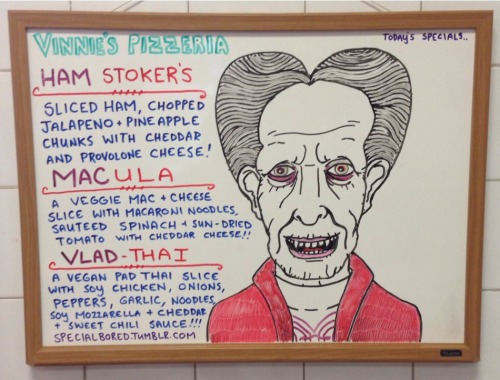 VINNIE'S PIZZERIA
TODAY'S SPECIALS..
HAM STOKER'S
SLICED HAM, CHOPPED
JALAPENO + PINEAPPLE
CHUNKS WITH CHEDDAR
AND PROVOLONE CHEESE!
MACULA
A VEGGIE MAC + CHEESE
SLICE WITH MACARONI NOODLES,
SAUTEED SPINACH + SUN-DRIED
TOMATO WITH CHEDDAR CHEESE!!
VLAD-THAI
A VEGAN PAD THAI SLICE
WITH SOY CHICKEN, ONIONS,
PEPPERS, GARLIC, NOODLES,
SOY MOZZARELLA + CHEDDAR
+ SWEET CHILI SAUCE!!!
SPECIALBORED.TUMBLR.COM